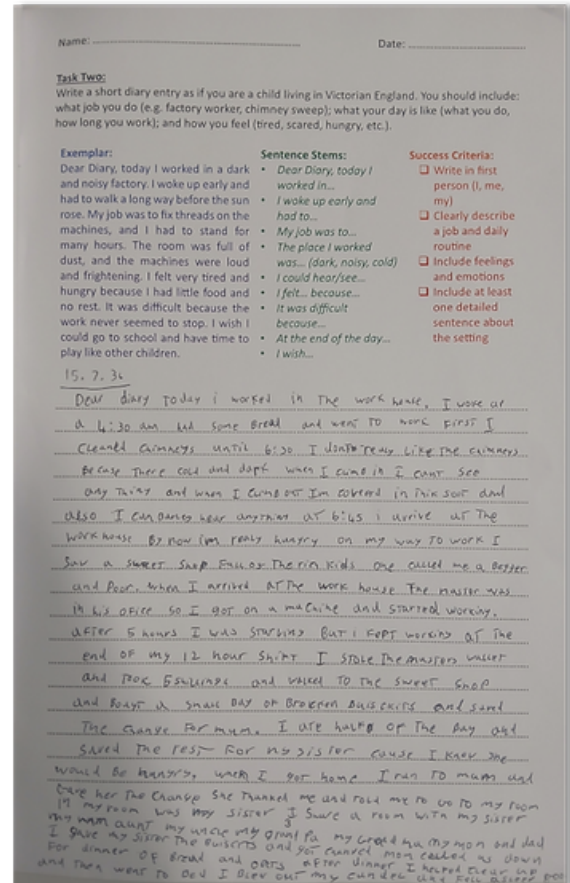 Name: ........ Date: ........
Task Two:
Write a short diary entry as if you are a child living in Victorian England. You should include:
what job you do (e.g. factory worker, chimney sweep); what your day is like (what you do,
how long you work); and how you feel (tired, scared, hungry, etc.).
Exemplar:
Dear Diary, today I worked in a dark
and noisy factory. I woke up early and
had to walk a long way before the sun
rose. My job was to fix threads on the
machines, and I had to stand for
many hours. The room was full of
dust, and the machines were loud
and frightening. I felt very tired and
hungry because I had little food and
no rest. It was difficult because the
work never seemed to stop. I wish I
could go to school and have time to
play like other children.
Sentence Stems:
• Dear Diary, today I
worked in...
• I woke up early and
had to...
• My job was to...
• The place I worked
was... (dark, noisy, cold)
• I could hear/see...
• I felt... because...
• It was difficult
because...
• At the end of the day...
• I wish...
Success Criteria:
❑ Write in first
person (I, me,
my)
❑ Clearly describe
a job and daily
routine
❑ Include feelings
and emotions
❑ Include at least
one detailed
sentence about
the setting
15.7.36
Dear diary Today i worked in The work house. I woke up
a 4:30 am had some Bread and went To work First I
Cleaned Chimneys until 6:30 I dont realy Like The chimneys
Because There cold and dark when I in I cant See
any Thing and when I out Im covered in Thik soot and
also I can barley hear anything at 6:45 i arrive at The
work house By now im realy hungry on my way To work I
Saw a sweet shop Full of The rich kids one called me a Begger
and Poor. When I arrived at The work house The master was
in his ofice So I got on a machine and started working.
after 5 hours I was starving But i kept working at The
end of my 12 hour Shift I stole The masters wallet
and Took 5 shillings and walked To the sweet shop
and Bought a small Bag of Brocken and saved
The change For mum. I ate half of The Bag and
Saved The rest For my sister cause I knew she
would Be hungry. when I got home I ran To mum and
Gave her The change She thanked me and told me to Go to my room
in my room was my sister I share a room with my sister
my mum aunt my uncle my my mom and dad
I gave my sister The and got mom called us down
For dinner of Bread and oats after dinner I helped up
and Then went To bed I Blew out my candel and Fell asleep